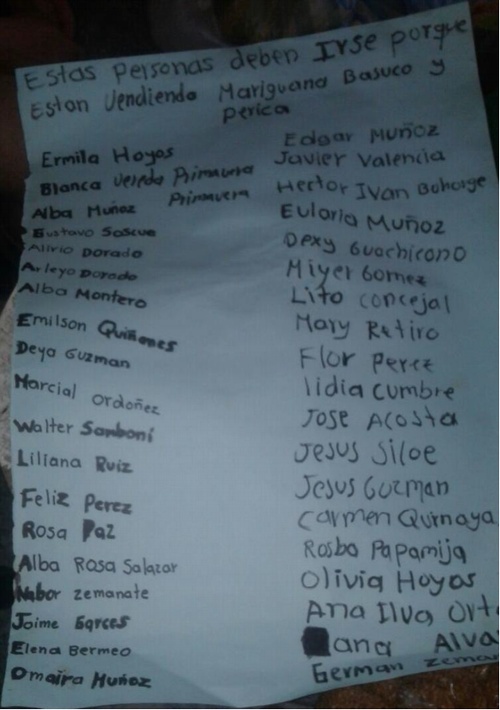 Estas Personas deben Irse porque
Estan Vendiendo Mariguana Basuco y
perica
Ermila Hoyos
Blanca Vereda Primavera
Alba Muñoz Primavera
Gustavo Soscue
Alirio Dorado
Arleyo Dorado
Alba Montero
Emilson Quiñones
Deya Guzman
Marcial Ordoñez
Walter Samboní
Liliana Ruiz
Feliz Perez
Rosa Paz
Alba Rosa Salazar
Nabor Zemanate
Jaime Garces
Elena Bermeo
Omaira Muñoz
Edgar Muñoz
Javier Valencia
Hector Ivan Bohorge
Eularia Muñoz
Dexy Guachicono
Miyer Gomez
Lito Concejal
Mary Retiro
Flor Perez
lidia Cumbre
Jose Acosta
Jesus Siloe
Jesus Guzman
Carmen Qurnaya
Rosba Papamija
Olivia Hoyos
Ana Ilva
German